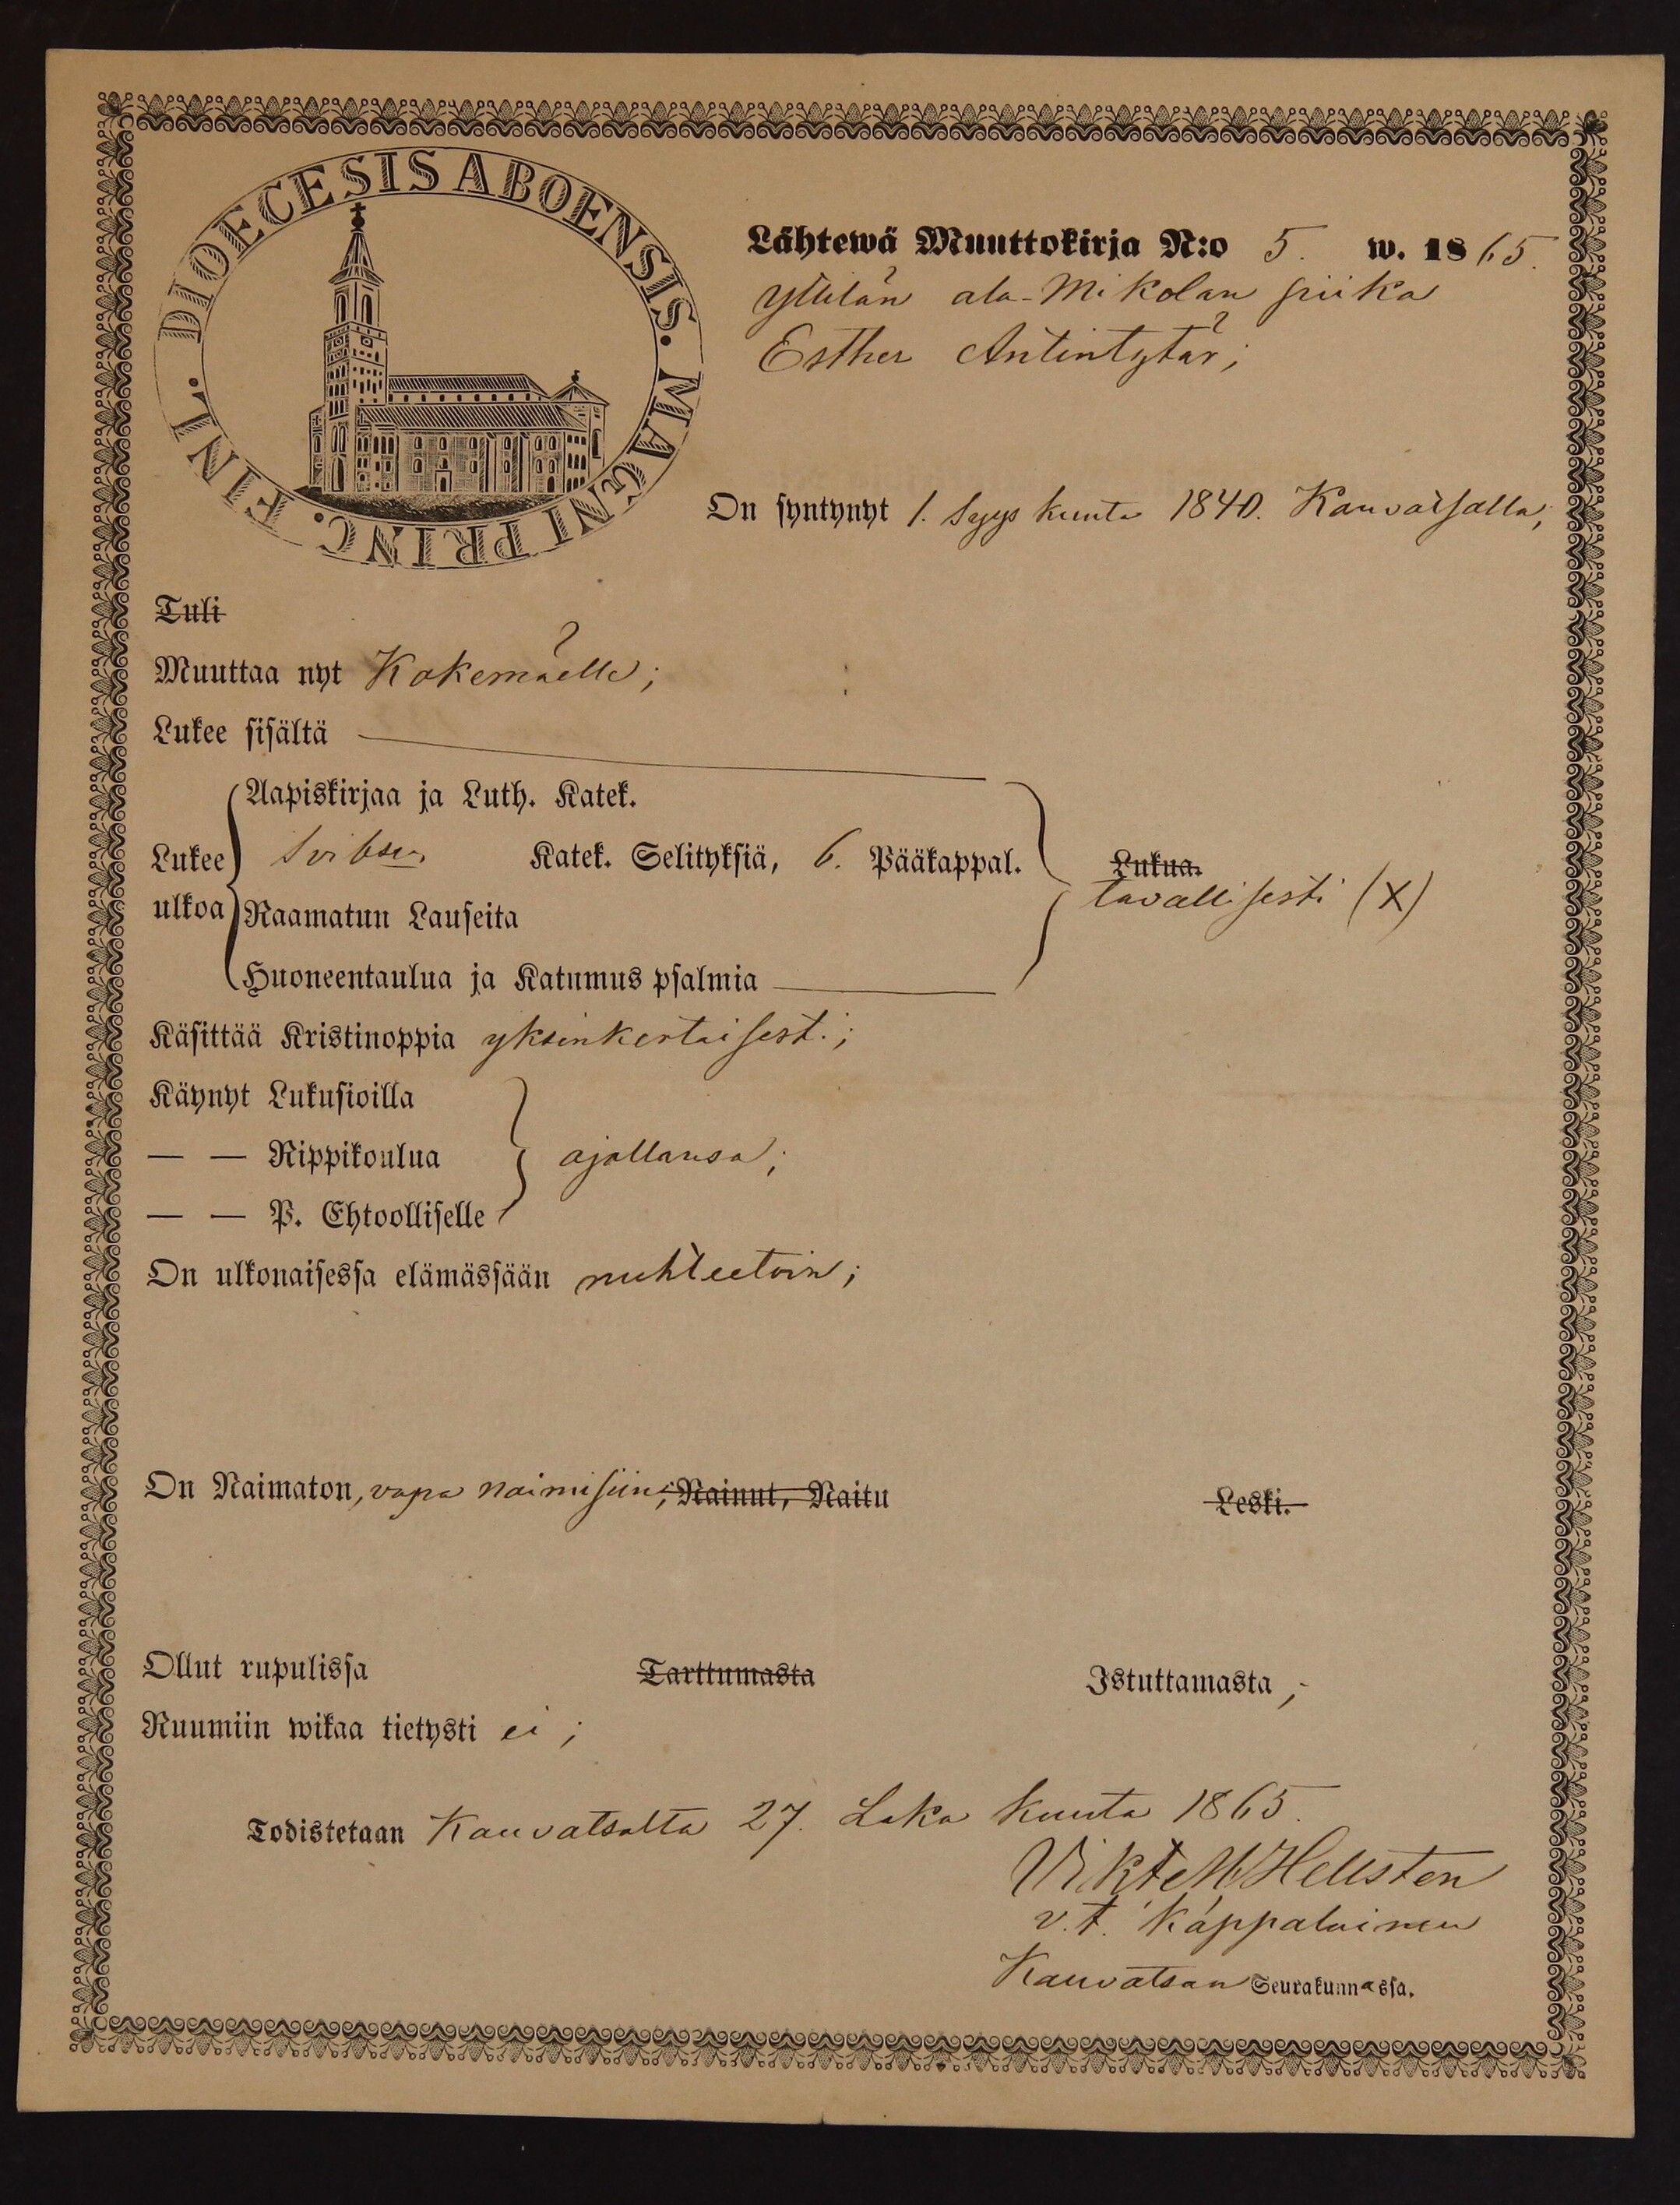 DIOECESIS ABOENSIS. MAGNI PRINC. FINL.
Lähtewä Muuttokirja N:o 5. w. 1865.
Yttilän ala-Mikolan piika
Esther Antintytär;
On syntynyt 1. Syys kuuta 1840. Kauvatsalla;
Tuli
Muuttaa nyt Kokemäelle;
Lukee sisältä
Aapiskirjaa ja Luth. Katek.
Lukee Katek. Selityksiä, 6. Pääkappal. Lukua.
tavallisesti (X)
ulkoa Raamatun Lauseita
Huoneentaulua ja Katumus psalmia
Käsittää Kristinoppia yksinkertaisesti;
Käynyt Lukusioilla
— — Rippikoulua ajallansa;
— — P. Ehtoolliselle
On ulkonaisessa elämässään nuhteetoin;
On Naimaton, vapa naimisiin; Nainut, Naitu Leski.
Ollut rupulissa Tarttumasta Istuttamasta;
Ruumiin wikaa tietysti ei;
Todistetaan Kauvatsalta 27. Loka kuuta 1865.
Hellsten
v.t. Kappalainen
Kauvatsan Seurakunnassa.